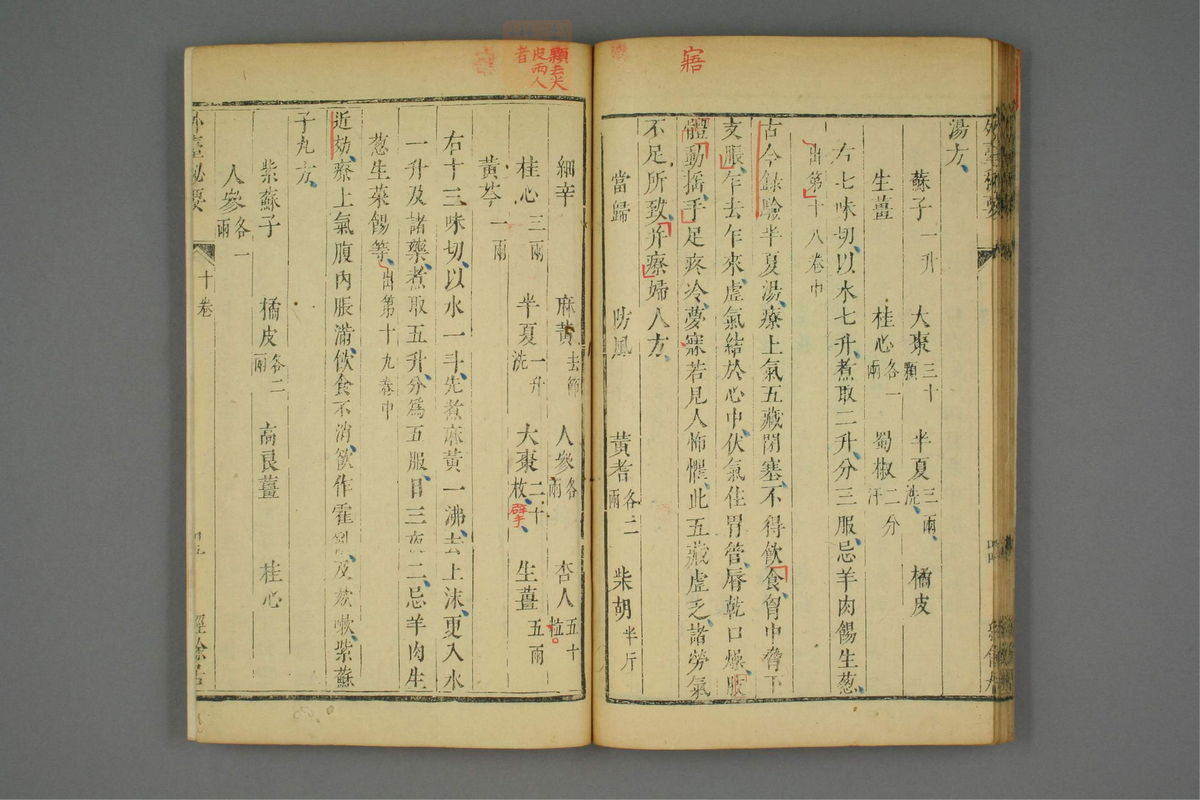 寤
湯方
蘇子一升 大棗三十顆 半夏三兩洗 橘皮
生薑 桂心各一兩 蜀椒二分汗
右七味切以水七升煮取二升分三服忌羊肉餳生葱
出第十八卷中
古今錄驗半夏湯療上氣五藏閉塞不得飲食胷中脅下
支脹乍去乍來虛氣結於心中伏氣住胃管脣乾口燥
體動摇手足疼冷夢寐若見人怖懼此五藏虛乏諸勞氣
不足所致并療婦人方
當歸 防風 黃耆各二兩 柴胡半斤
細辛 麻黃去節 人參各兩 杏人五十粒
桂心三兩 半夏一升洗 大棗二十枚擘 生薑五兩
黃芩一兩
右十三味切以水一斗先煮麻黃一沸去上沫更入水
一升及諸藥煮取五升分爲五服日三夜二忌羊肉生
葱生菜餳等出第十九卷中
近効療上氣腹內脹滿飲食不消欲作霍亂及欬嗽紫蘇
子丸方
紫蘇子 橘皮各二兩 高良薑 桂心
人參各一兩
外臺秘要 十卷 經餘居